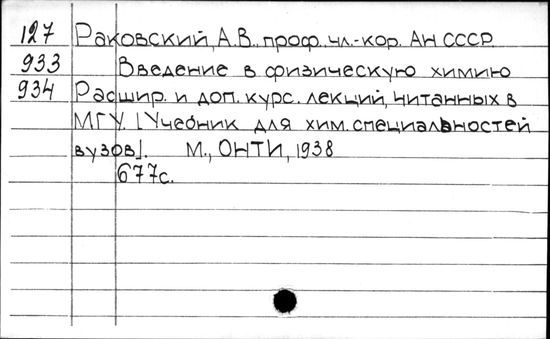 127 Раковский, А.В., проф., чл.-кор. АН СССР
933 Введение в физическую химию
934 Расшир. и доп. курс. лекций, читанных в
МГУ. [Учебник для хим. специальностей
вузов]. М., ОНТИ, 1938
677с.